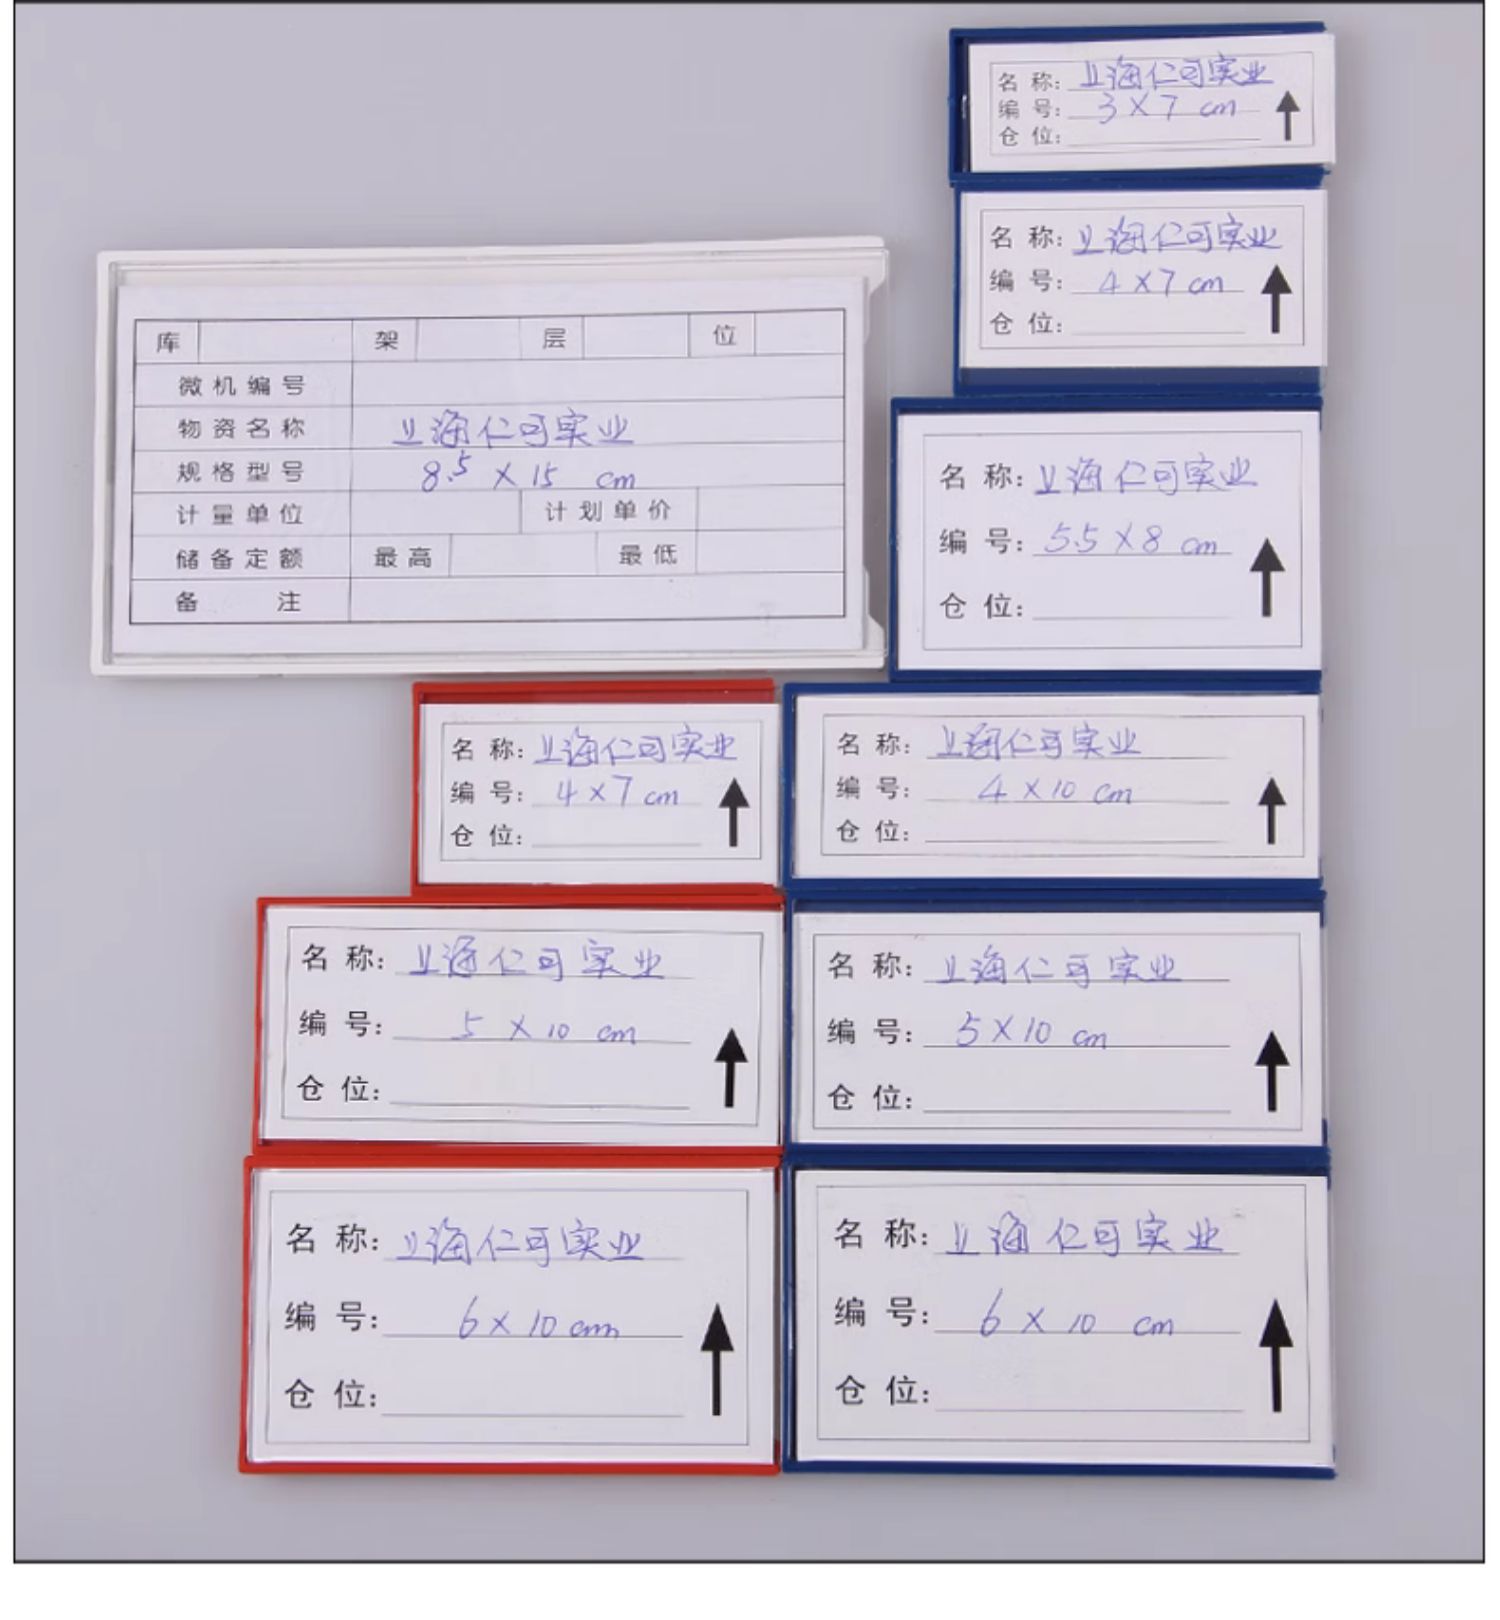 名 称: 上海仁可实业
编 号: 3×7 cm
仓 位:
名 称: 上海仁可实业
编 号: 4×7 cm
仓 位:
库 架 层 位
微机编号
物资名称 上海仁可实业
规格型号 8.5 × 15 cm
计量单位 计划单价
储备定额 最高 最低
备 注
名 称: 上海仁可实业
编 号: 5.5×8 cm
仓 位:
名 称: 上海仁可实业
编 号: 4×7 cm
仓 位:
名 称: 上海仁可实业
编 号: 4×10 cm
仓 位:
名 称: 上海仁可实业
编 号: 5 × 10 cm
仓 位:
名 称: 上海仁可实业
编 号: 5×10 cm
仓 位:
名 称: 上海仁可实业
编 号: 6×10 cm
仓 位:
名 称: 上海仁可实业
编 号: 6 × 10 cm
仓 位: